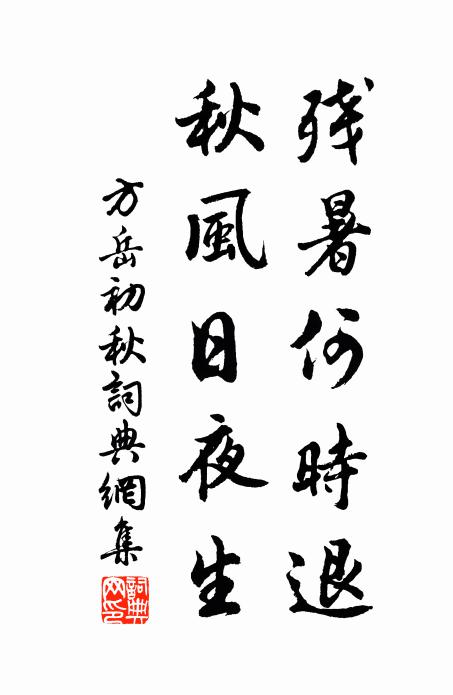 残暑何時退
秋風日夜生
方岳初秋詞典網集
詞典網印